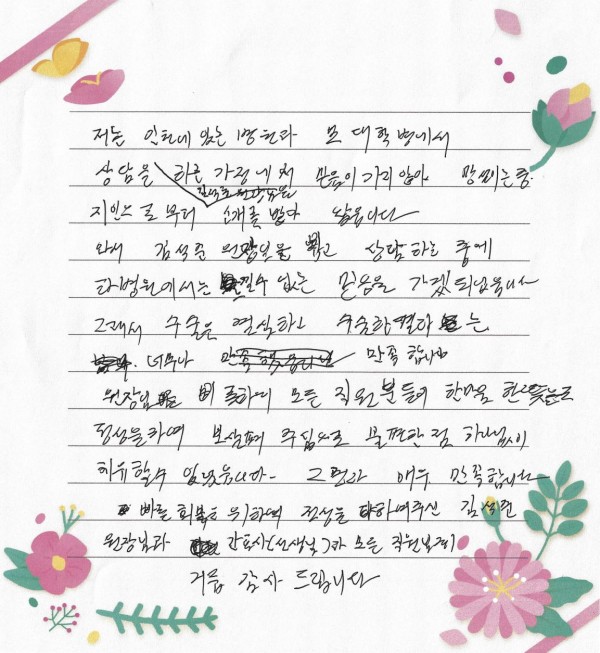 저는 인천에 있는 병원과 모 대학병에서
상담을 하는 과정에서 믿음이 가지 않아 망설이는중.
김석준 원장님을
지인으로부터 소개를 받아 왔습니다
와서 김석준 원장님을 뵙고 상담하는 중에
타병원에서는 느낄수 없는 믿음을 가졌되었읍니다
그래서 수술을 결심하고 수술한 결과는
너무나 만족합니다
원장님 비롯하여 모든 직원분들이 한마음 한뜻으로
정성을하여 보살펴 주심으로 불편한 점 하나없이
치유할수 있었읍니다. 결과 매우 만족합니다
빠른 회복을 위하여 정성을 다하여주신 김석준
원장님과 간호사(선생님)과 모든 직원님께
거듭 감사 드립니다